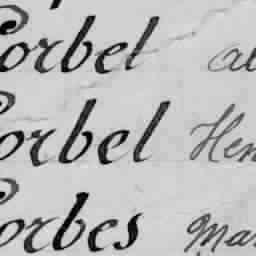 Corbet Al
Corbel Hen
Corbes Mar